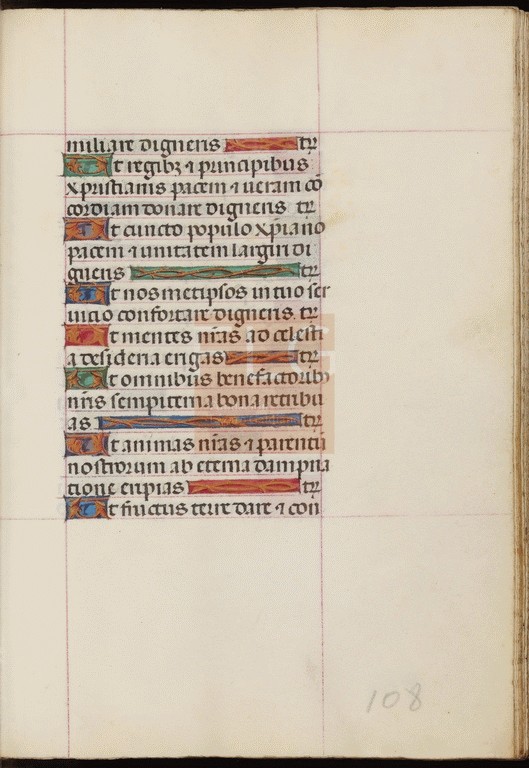 miliare digneris tr̄
Et regibz ⁊ principibus
xpristianis pacem ⁊ ueram cō
cordiam donare digneris tr̄
Et cuncto populo xp̄iano
pacem ⁊ unitatem largiri di
gneris tr̄
Et nos metipsos in tuo ser
uicio confortare digneris. tr̄
Et mentes nr̄as ad celesti
a desideria erigas tr̄
Et omnibus benefactoribz
nr̄is sempiterna bona retribu
as tr̄
Et animas nr̄as ⁊ parentū
nostrorum ab eterna dampna
tione eripias tr̄
Et fructus terre dare ⁊ con
108